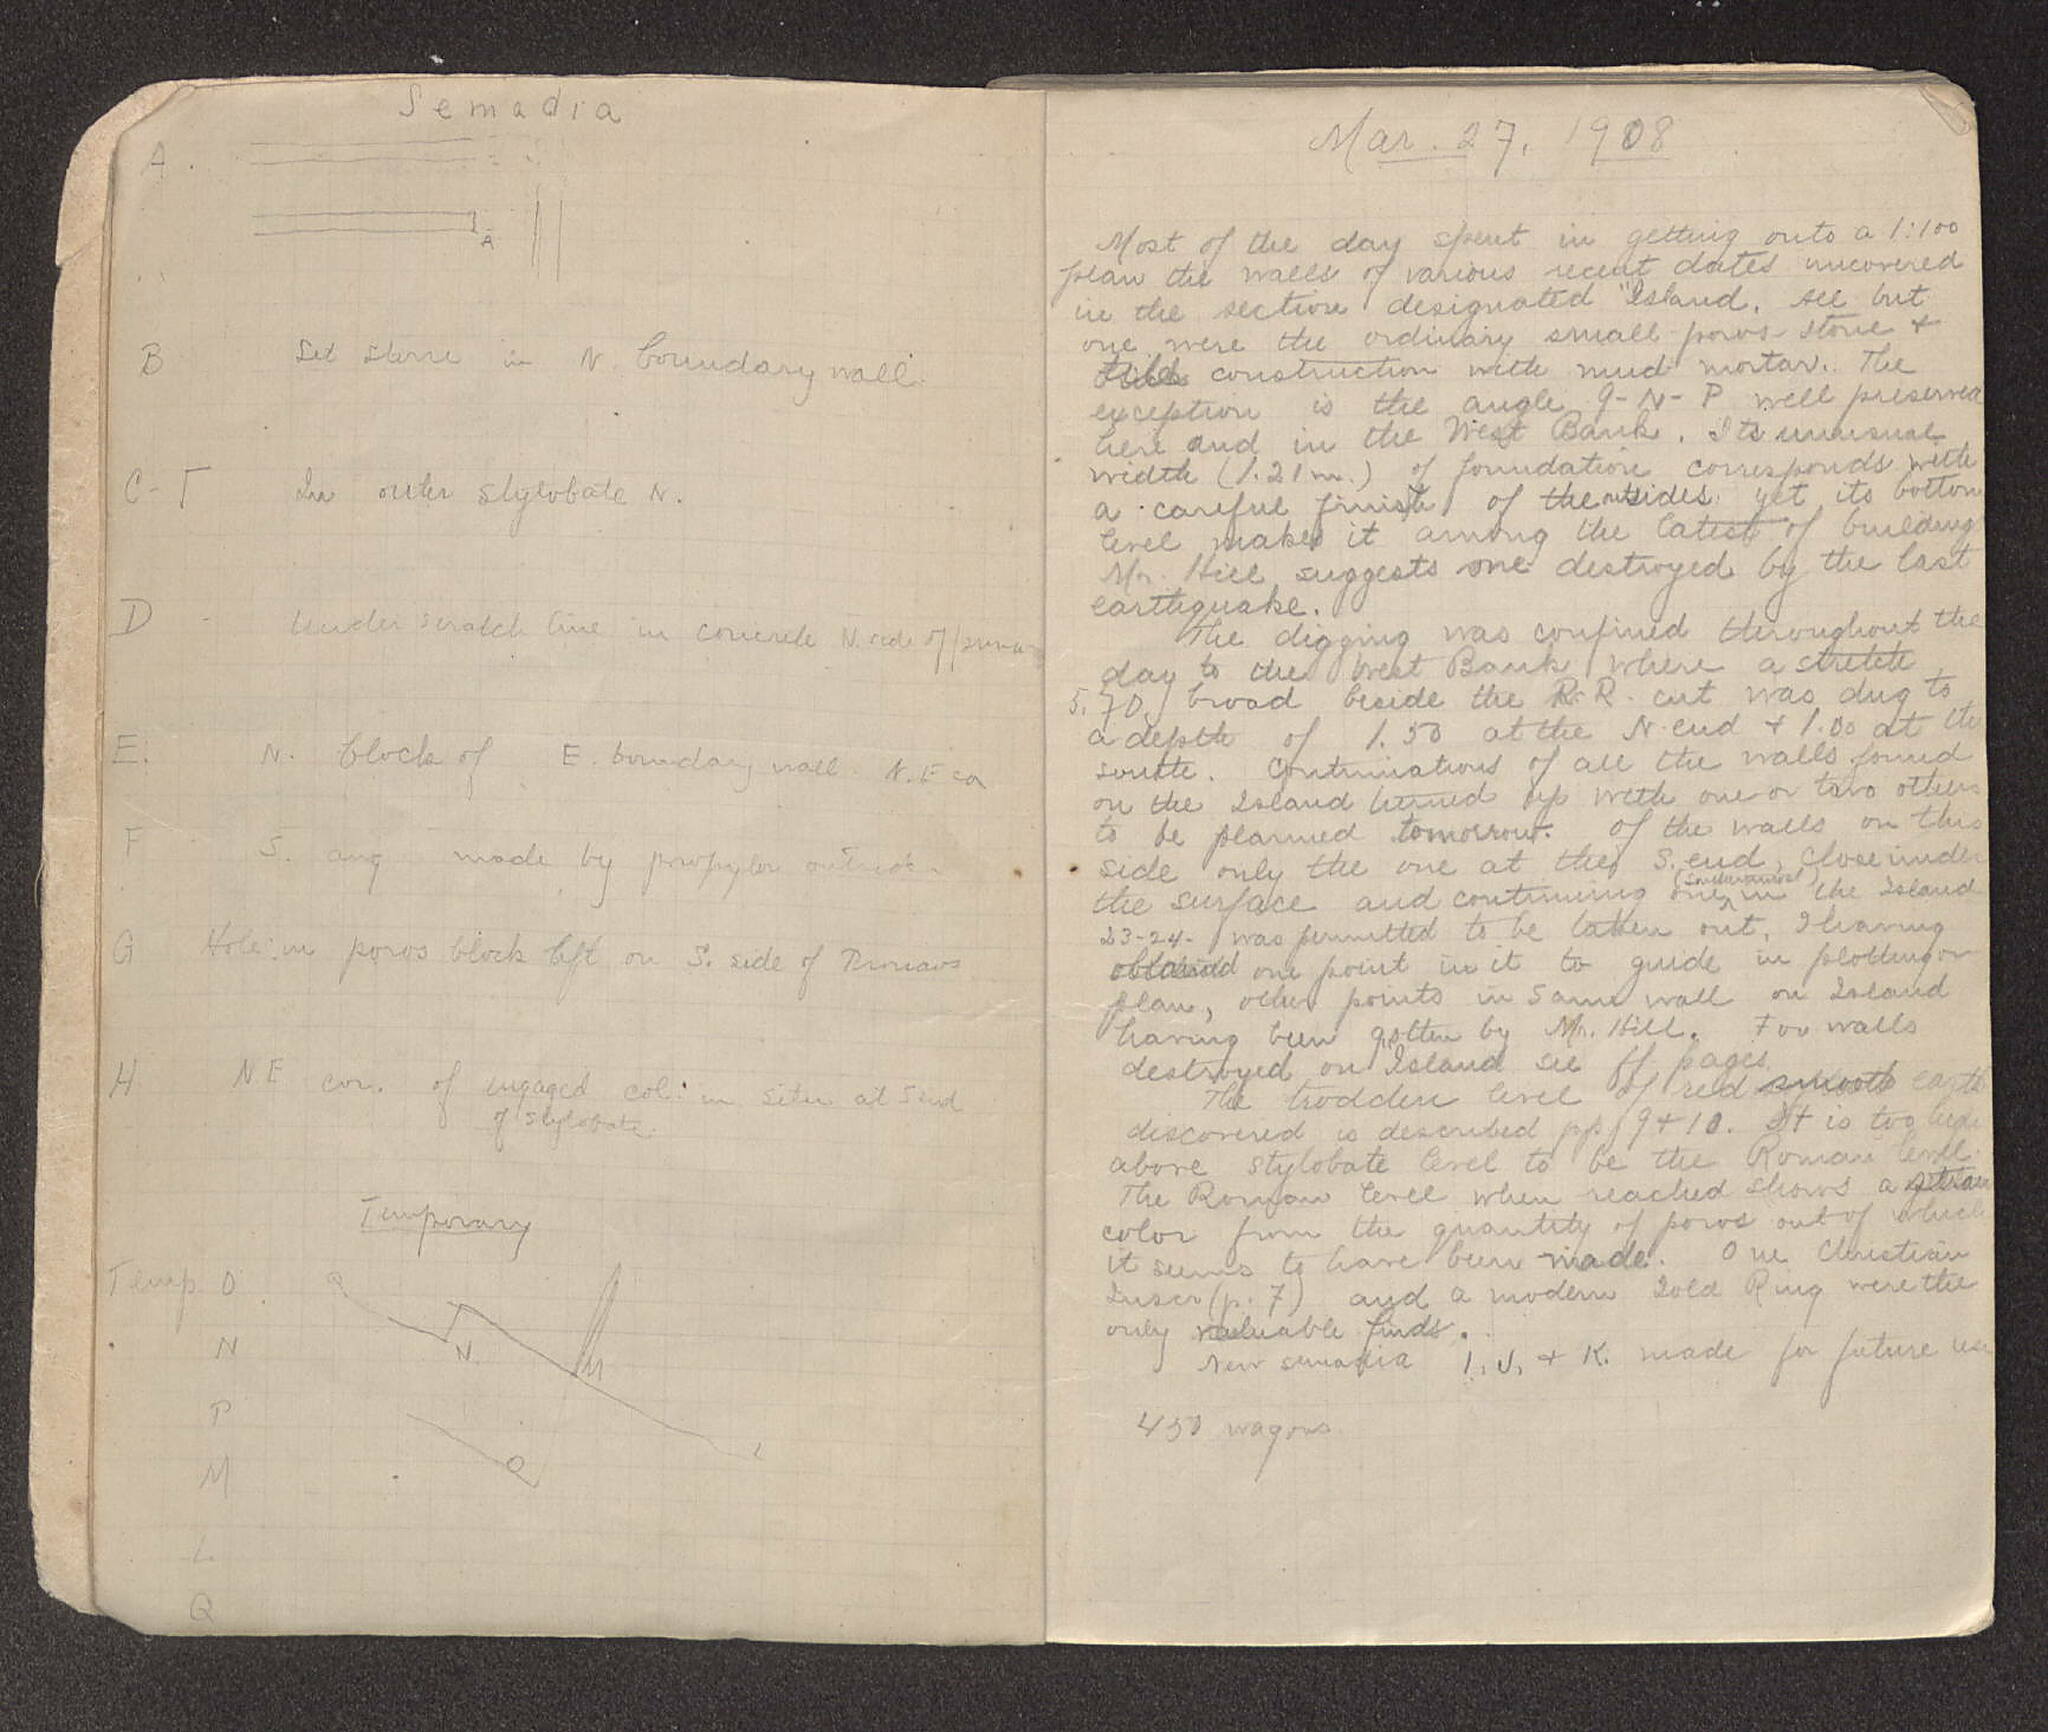 Semadia
A.
A
B Set stone in N. boundary wall.
C-T In outer stylobate N.
D - Under scratch line in concrete N. side of
E. N. block of E. boundary wall. N.E co
F S. ang made by propylon outside.
G Hole in poros block left on S. side of Pronaos
H N.E cor. of engaged col. in situ at S end
of stylobate.
Temporary
Temp O
N
P
M
L
Q
Q
N
M
O
L
Mar. 27, 1908
Most of the day spent in getting onto a 1:100
plan the walls of various recent dates uncovered
in the section designated "Island. All but
one were the ordinary small poros stone +
construction with mud mortar. The
exception is the angle Q-N-P well preserved
here and in the West Bank. Its unusual
width (1.21 m.) of foundation corresponds with
a careful finish of the outsides yet its bottom
level makes it among the latest of building
Mr. Hill suggests one destroyed by the last
earthquake.
The digging was confined throughout the
day to the West Bank where a stretch
5.70 broad beside the R.R. cut was dug to
a depth of 1.50 at the N. end + 1.00 at the
south. Continuations of all the walls found
on the Island turned up with one or two others
to be planned tomorrow. Of the walls on this
side only the one at the S. end, close under
the surface and continuing one (southernmost) in the Island
23-24- was permitted to be taken out, I having
obtained one point in it to guide in plotting on
plan, other points in same wall on Island
having been gotten by Mr. Hill. For walls
destroyed on Island see ff pages.
The trodden level of red smooth earth
discovered is described pp 9+10. It is too high
above stylobate level to be the Roman level.
The Roman level when reached shows a
color from the quantity of poros out of which
it seems to have been made. One Christian
Inscr (p. 7) and a modern Gold Ring were the
only valuable finds.
New semadia I, J, + K. made for future use
450 wagons